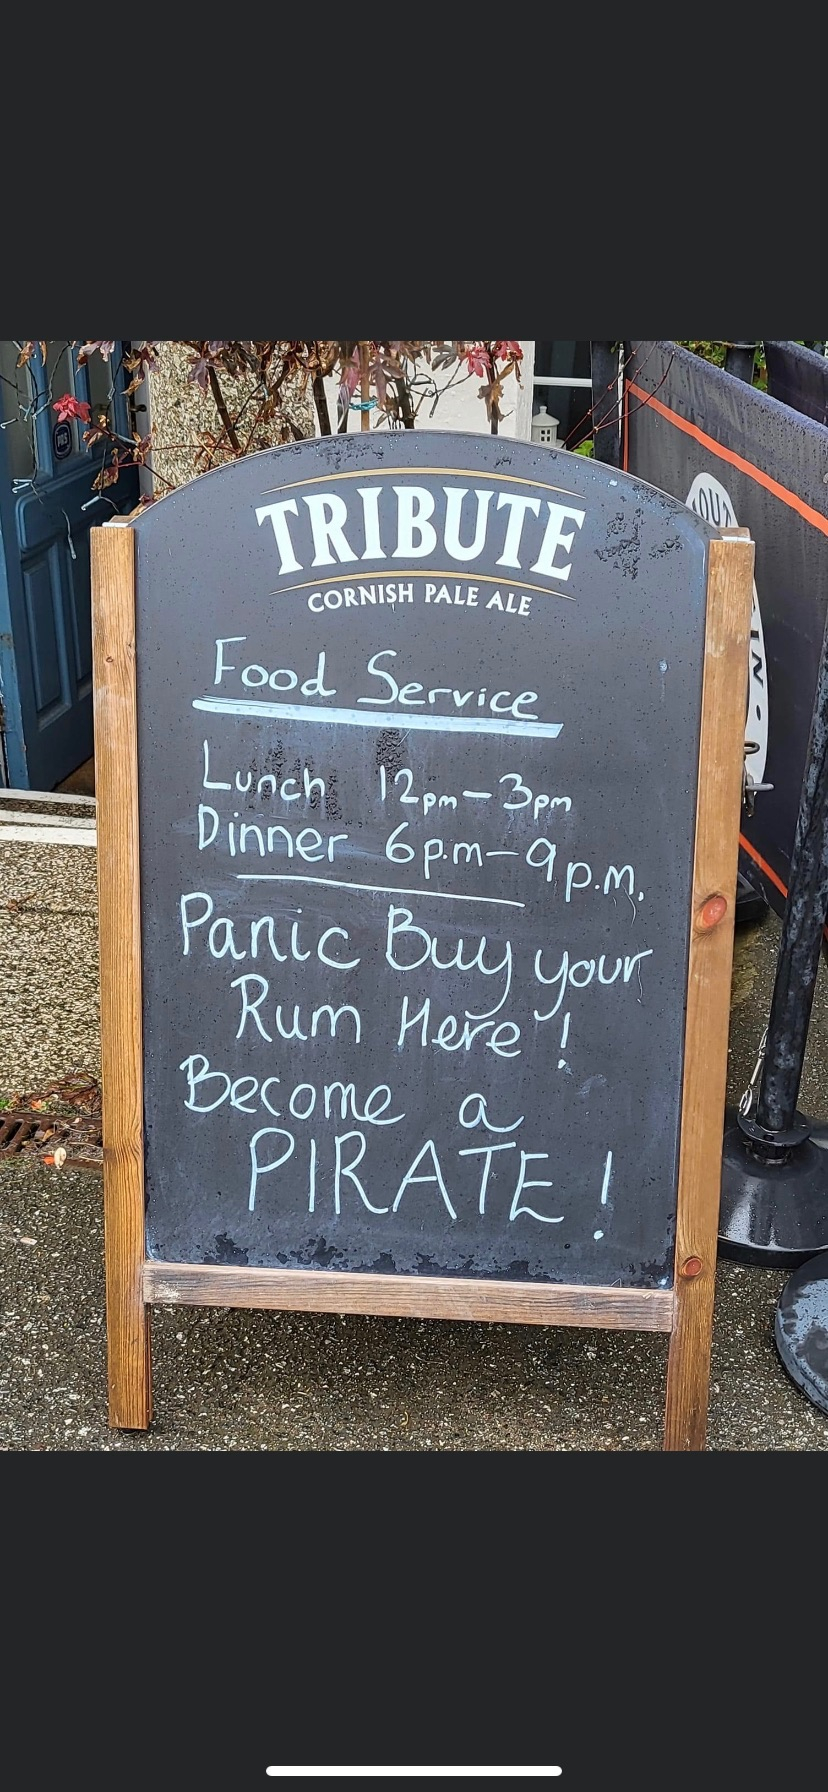 TRIBUTE
CORNISH PALE ALE
Food Service
Lunch 12pm-3pm
Dinner 6p.m-9p.m.
Panic Buy your
Rum Here !
Become a
PIRATE !